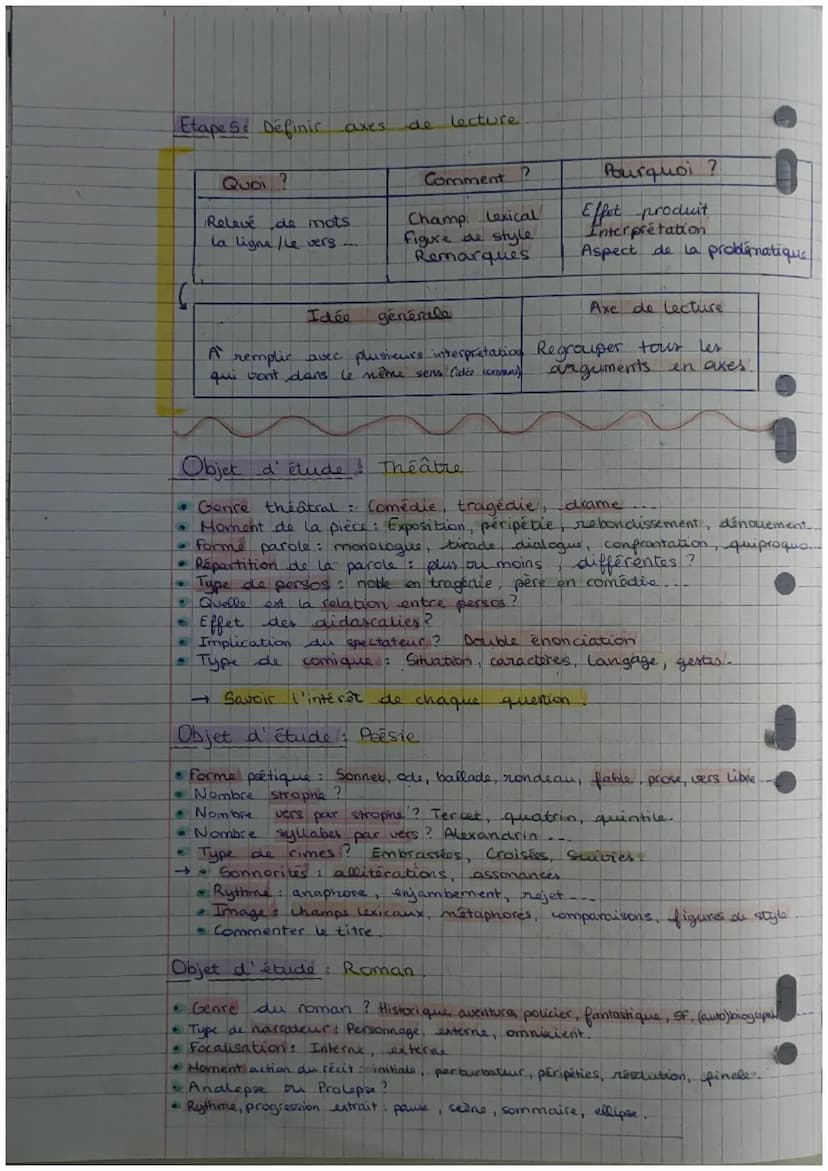 Etape 5: Définir axes de lecture
Quoi ?
Comment ?
Pourquoi ?
Relevé de mots
la ligne/le vers ...
Champ lexical
Figure de style
Remarques
Effet produit
Interprétation
Aspect de la problématique
Idée générale
Axe de lecture
A remplir avec plusieurs interprétation
qui vont dans le même sens (idée commune)
Regrouper tous les
arguments en axes.
Objet d'étude : Théâtre
• Genre théâtral : Comédie, tragédie, drame ...
• Moment de la pièce : Exposition, péripétie, rebondissement, dénouement...
• Forme parole : monologue, tirade, dialogue, confrontation, quiproquo...
• Répartition de la parole : plus ou moins, différentes ?
• Type de persos : noble en tragédie, père en comédie ...
• Quelle est la relation entre persos ?
• Effet des didascalies ?
• Implication du spectateur ? Double énonciation
• Type de comique : Situation, caractères, langage, gestes.
→ Savoir l'intérêt de chaque question.
Objet d'étude : Poésie
• Forme poétique : Sonnet, ode, ballade, rondeau, fable, prose, vers libre ...
• Nombre strophe ?
• Nombre vers par strophe ? Tercet, quatrin, quintile.
• Nombre syllabes par vers ? Alexandrin ...
• Type de rimes ? Embrassées, Croisées, Suivies.
→ • Sonnorités : allitérations, assonances
• Rythme : anaphore, enjambement, rejet ...
• Image : champs lexicaux, métaphores, comparaisons, figures de style.
• Commenter le titre.
Objet d'étude : Roman
• Genre du roman ? Historique, aventure, policier, fantastique, SF,
• Type de narrateur : Personnage, externe, omniscient.
• Focalisation : Interne, externe
• Moment action du récit : initiale, perturbateur, péripéties, résolution, finale.
• Analepse ou Prolepse ?
• Rythme, progression extrait : pause, scène, sommaire, ellipse.